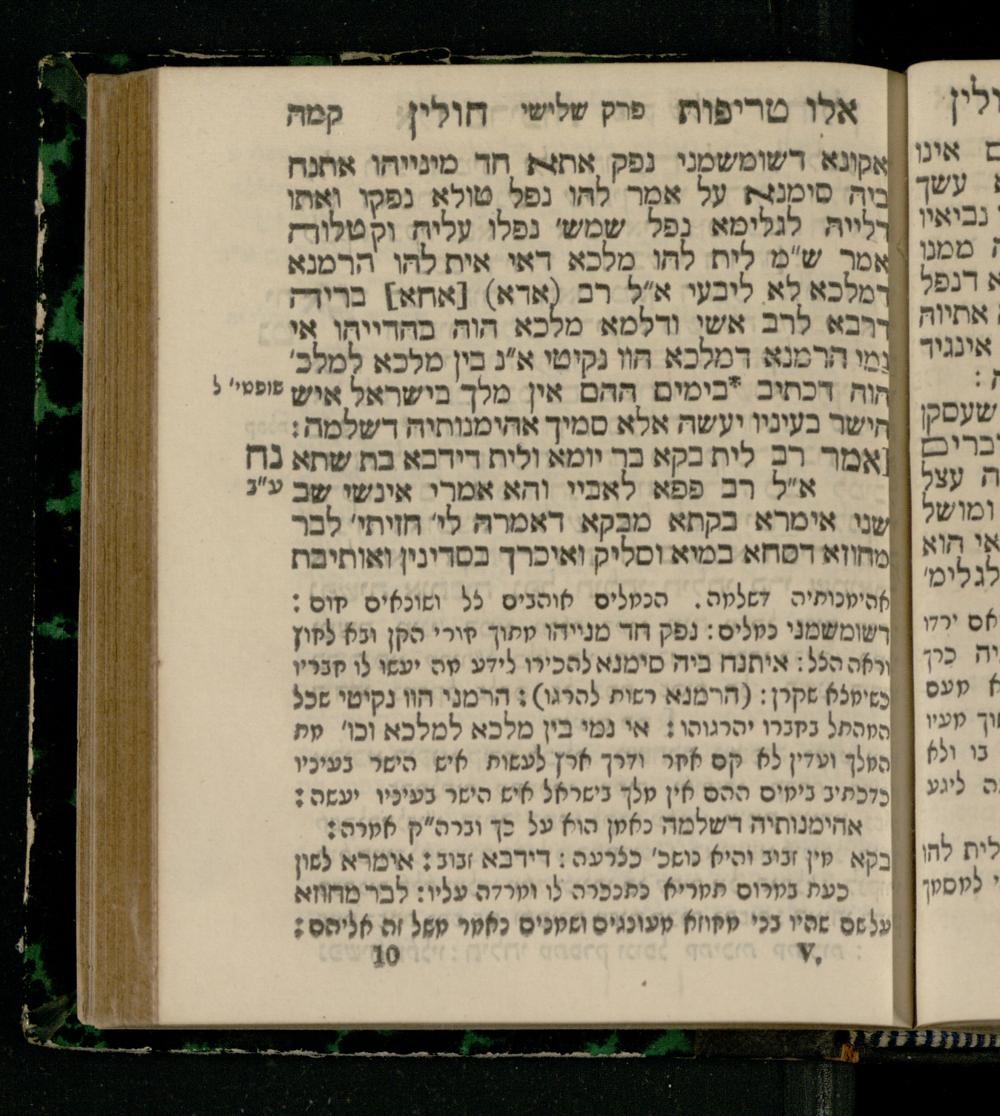 אלו טריפות פרק שלישי חולין קמה
אקונא דשומשמני נפק אתא חד מינייהו אתנח
ביה סימנא על אמר להו נפל טולא נפקו ואתו
דלייה לגלימא נפל שמש׳ נפלו עליה וקטלוה
אמר ש״מ לית להו מלכא דאי אית להו הרמנא
דמלכא לא ליבעי א״ל רב (אדא) [אחא] בריה
דרבא לרב אשי ודלמא מלכא הוה בהדייהו אי
נמי הרמנא דמלכא הוו נקיטי א״נ בין מלכא למלכ׳
הוה דכתיב *בימים ההם אין מלך בישראל איש
שופטי׳
הישר בעיניו יעשה אלא סמיך אהימנותיה דשלמה:
[אמר רב לית בקא בר יומא ולית דידבא בת שתא
נח
א״ל רב פפא לאביי והא אמרי אינשי שב
ע״ב
שני אימרא בקתא מבקא דאמרה לי׳ חזיתי׳ לבר
מחוזא דסחא במיא וסליק ואיכרך בסדינין ואותיבת
אהימנותיה דשלמה. הנמלים אוהבים צל ושונאים חום:
דשומשמני נמלים: נפק חד מנייהו מתוך חורי הקן ובא לחוץ
וראה הצל: איתנח ביה סימנא להכירו לידע מה יעשו לו חבריו
כשימלא שקרן: (הרמנא רשות להרגו): הרמני הוו נקיטי שכל
המהתל בחברו יהרגוהו: אי נמי בין מלכא למלכא וכו׳ מת
המלך ועדיין לא קם אחר ודרך ארץ לעשות איש הישר בעיניו
כדכתיב בימים ההם אין מלך בישראל איש הישר בעיניו יעשה:
אהימנותיה דשלמה נאמן הוא על כך וברה״ק אמרה:
בקא מין זבוב והיא נושכ׳ כצרעה: דידבא זבוב: אימרא לשון
כעת במרום תמריא כתנכרה לו ומרדה עליו: לבר מחוזא
על שם שהיו בני מחוזא מעונגים ושמנים נאמר משל זה אליהם:
V. 10
ולין
ם אינו
א עשך
נביאיו
ה ממנו
א דנפל
אתיוה
אינגיד
ה:
שעסקן
דברים
ה עצל
ומושל
אי הוא
לגלימ׳
אם ירדו
יה כרך
א מעם
וך מעיו
בו ולא
ה ליגע
לית להו
י למסמך